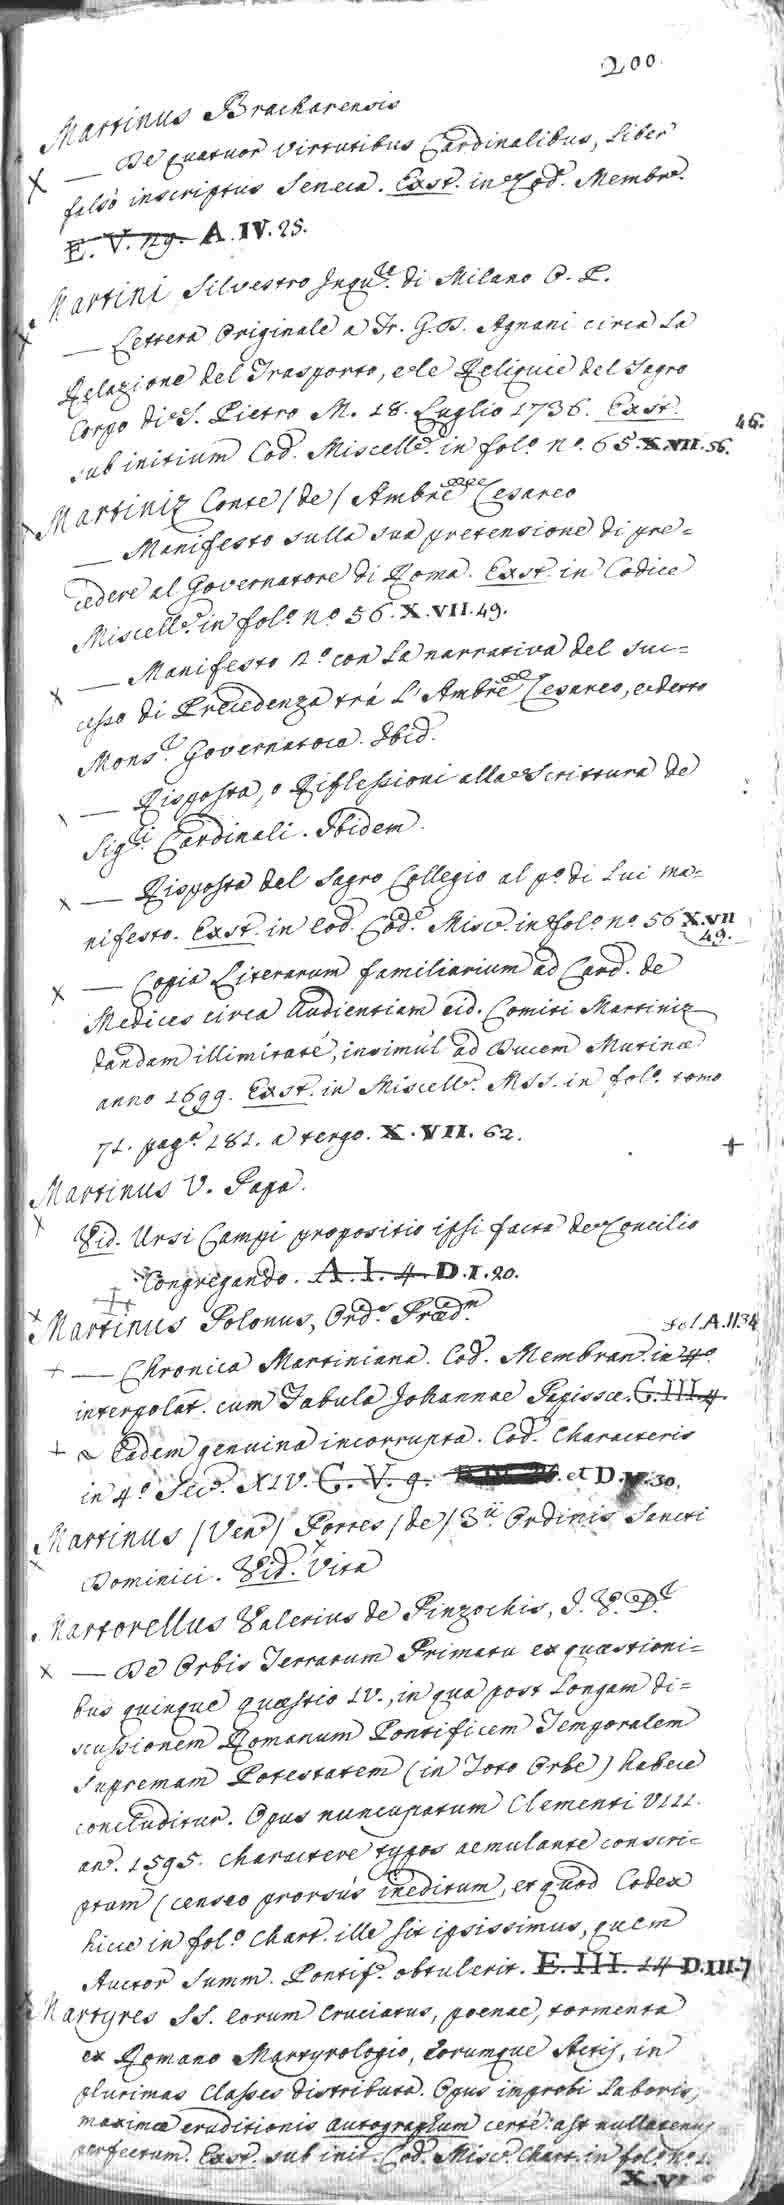 200.
Martinus Bracharensis
— De quatuor virtutibus Cardinalibus, Liber
falsò inscriptus Seneca. Exst. in Cod. Membr.
E. V. 29. A.IV.25.
Martini Silvestro Inqu.re di Milano O. P.
— Lettera Originale a Fr. G. B. Agnani circa la
Relazione del Trasporto, e le Reliquie del Sagro
Corpo di S. Pietro M. 18. Luglio 1736. Exst.
sub initium Cod. Miscell. in fol.o n.o 65. X.VII.56. 46.
Martiniz Conte (de) Ambre Cesareo
— Manifesto sulla sua pretensione di pre=
cedere al Governatore di Roma. Exst. in Codice
Miscell. in fol.o n.o 56. X.VII.49.
— Manifesto 2.o con la narrativa del suc=
cesso di Precedenza trà l'Ambre Cesareo, e detto
Mons.r Governatore. Ibid.
— Risposta, o Riflessioni alla Scrittura de
Sig.ri Cardinali. Ibidem.
— Risposta del Sagro Collegio al p.o di lui ma=
nifesto. Exst. in eod. Cod.e Misc. in fol.o n.o 56 X.VII
49.
— Copia Literarum familiarium ad Card. de
Medices circa Audientiam eid. Comiti Martiniz
dandam illimitatè, insimùl ad Ducem Mutinæ
anno 1699. Exst. in Miscell. MSS. in fol.o tomo
71. pag.e 181. a tergo. X.VII.62.
Martinus V. Papa.
Vid. Ursi Campi propositio ipsi facta de Concilio
Congregando. A. I. 4. D.I.20.
Martinus Polonus, Ord. Præd.m
fol. A.II34
— Chronica Martiniana. Cod. Membran. in 4.o
interpolat. cum Fabula Johannae Papissæ. C.III.4.
Eadem genuina incorrupta. Cod. Characteris
in 4.o Sec. XIV. C. V. 9. et D.V.30.
Martinus (Ven.) Porres (de) 3.ii Ordinis Sancti
Dominici. Vid. Vita
Martorellus Valerius de Pinzochis, I. V. D.r
— De Orbis Terrarum Primatu ex quæstioni=
bus quinque quæstio IV., in qua post longam di=
scussionem Romanum Pontificem Temporalem
Supremam Potestatem (in Toto Orbe) habere
concluditur. Opus nuncupatum Clementi VIII.
an. 1595. charactere typos aemulante conscri=
ptum (censeo prorsùs ineditum, et quod Codex
hicce in fol.o Chart. ille sit ipsissimus, quem
Auctor Summ. Pontif. obtulerit. E. III. 14 D.III.7
Martyres SS. eorum cruciatus, poenae, tormenta
ex Romano Martyrologio, eorumque Actis, in
plurimas Classes distributa. Opus improbi Laboris,
maximæ eruditionis autographum certè: ast nullatenus
perfectum. Exst. sub init. Cod. Misc. Chart. in fol. n.o 1.
X.VI